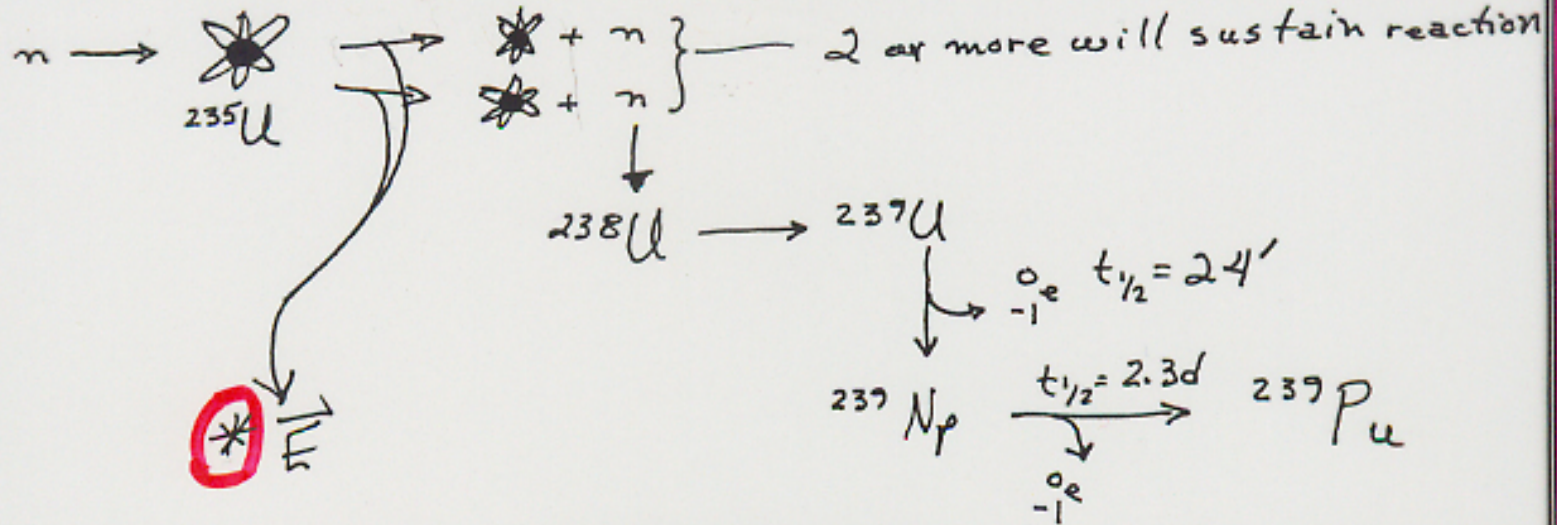 n → ²³⁵U → + n } — 2 or more will sustain reaction
→ + n
²³⁸U → ²³⁹U
⁰₋₁e t₁/₂ = 24′
²³⁹Np t₁/₂ = 2.3d → ²³⁹Pu
⁰₋₁e
* E